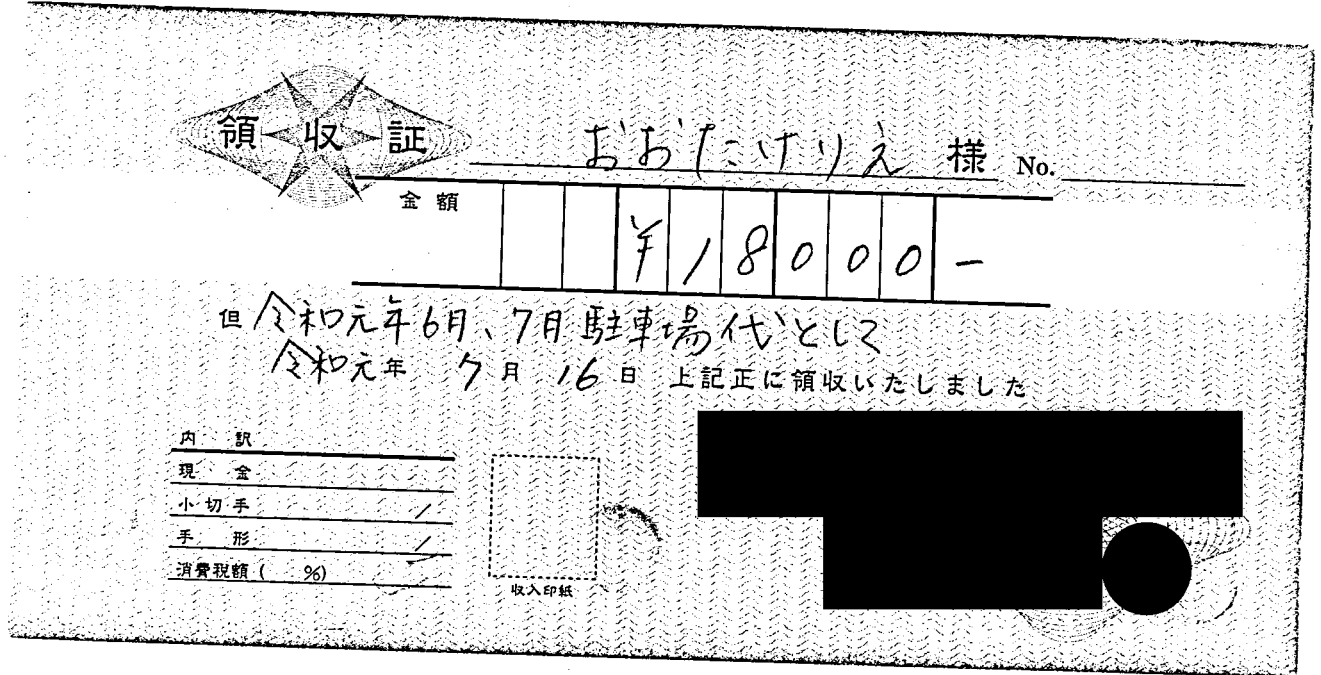 領収証
おおたけりえ 様 No.
金額
¥18000-
但 令和元年6月、7月駐車場代として
令和元年 7月 16日 上記正に領収いたしました
内訳
現金
小切手
手形
消費税額( %)
収入印紙